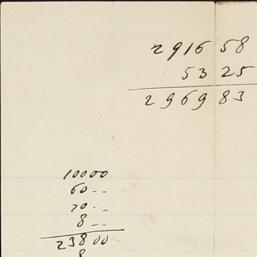 2916 58
53 25
2969 83
10000
60--
70--
8--
23800
8